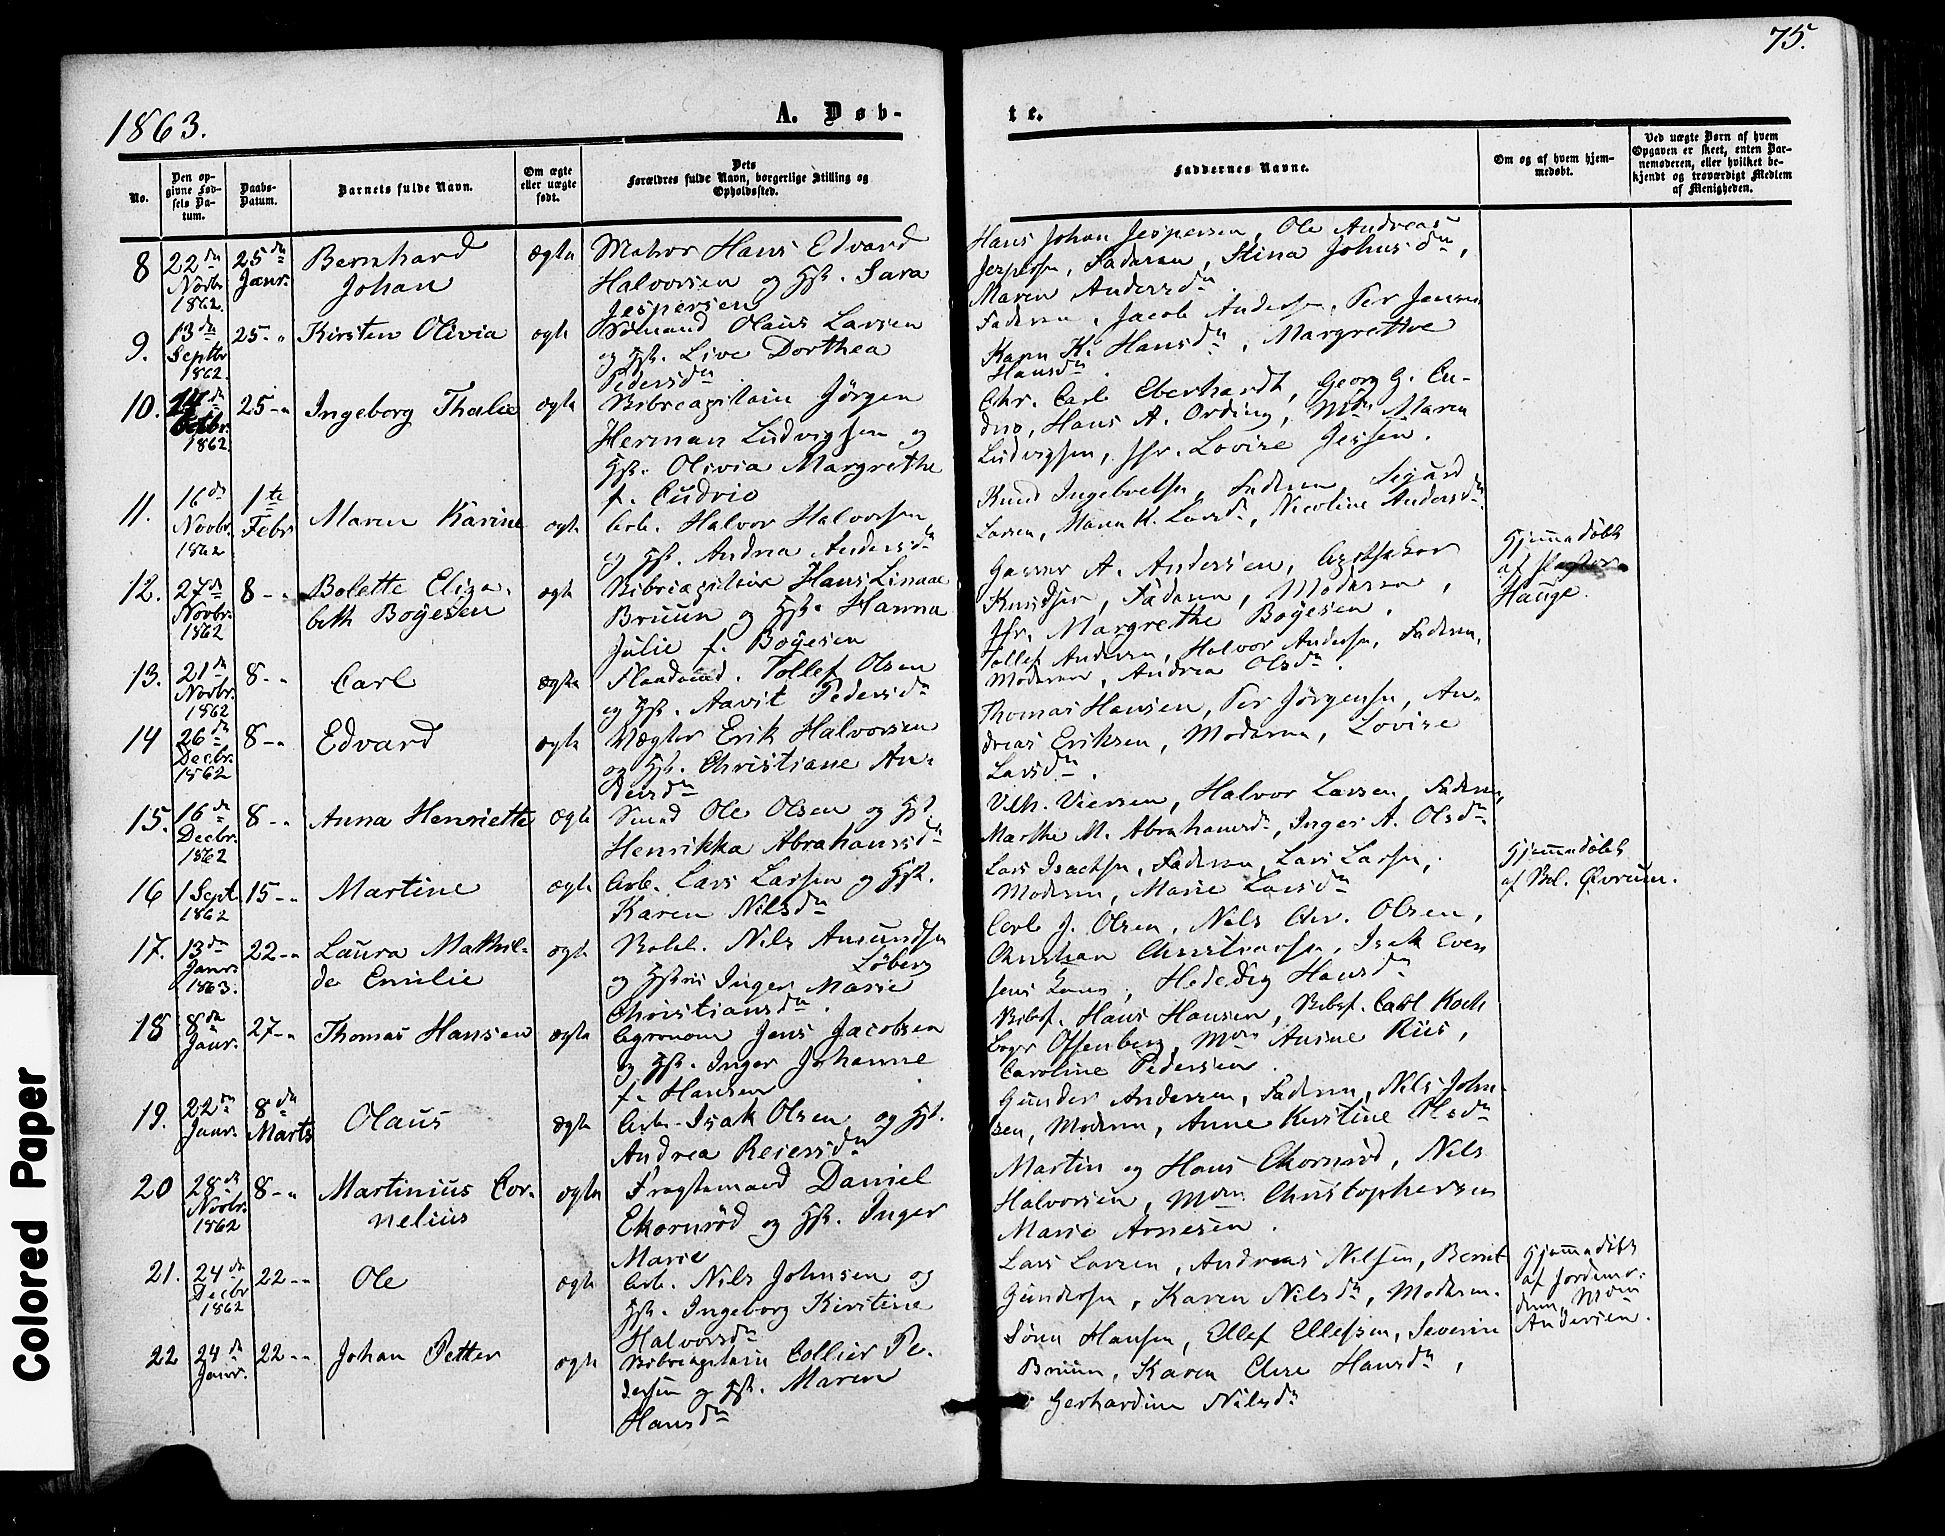 75.
1863.
A. Døb-
te.
No.
Den op-
givne Fød-
sels Da-
tum.
Daabs-
Datum.
Barnets fulde Navn.
Om ægte
eller uægte
født.
Dets
Forældres fulde Navn, borgerlige Stilling og
Opholdssted.
Faddernes Navne.
Om og af hvem hjem-
medøbt.
Ved uægte Børn af hvem
Opgaven er skeet, enten Bar-
nemoderen, eller hvilket be-
kjendt og troværdigt Medlem
af Menigheden.
8 22de Novbr 1862 25de Janr. Bernhard Johan ægte
Hans Edvard
Halvorsen og Hst. Sara
Jespersen
Hans Johan Jespersen, Ole Andreas
Jespersen, Faderen, Stina Johnsdn,
Maren Andersdn.
9. 13de Septbr 1862. 25 - " Kirsten Olivia ægte
Sømand Olaus Larsen
og Hst. Live Dorthea
Pedersdn
Faderen, Jacob Andersen, Per Jensen
Karen K. Hansdn, Margrethe
Hansdn.
10. Octbr. 1862 25 - " Ingeborg Thalie ægte
Skibscapitain Jörgen
Herman Ludvigsen og
Hst. Olivia Margrethe
f. Cudrio
Chr. Carl Eberhardt, Georg G. Cu-
drio, Hans A. Ording, Mdm Maren
Ludvigsen, Jfr. Lovise Jessen.
11. 16de Novbr. 1862 1ste Febr Maren Karine ægte
Arb. Halvor Halvorsen
og Hst. Andrea Andersdn
Knud Ingebretsen, Faderen, Sigurd
Larsen, Maren K. Larsdn, Nicoline Andersdn
12. 27de Novbr. 1862 8 - " Bolette Eliza-
beth Boyesen ægte
Skibscapitain Hans Linaae
Bruun og Hst. Hanna
Julie f. Boyesen
A. Andersen, Apotheker
Knudsen, Faderen, Moderen,
Jfr. Margrethe Boyesen.
Hjemmedøbt
af Pastor
Hauge.
13. 21de Novbr. 1862 8 - " Carl ægte
Tollef Olsen
og Hst. Aavit Pedersdn
Tollef Andersen, Halvor Andersen, Faderen,
Moderen, Andrea Olsdn.
14 26de Decbr. 1862 8 - " Edvard ægte
Vægter Erik Halvorsen
og Hst. Christiane An-
dersdn
Thomas Hansen, Per Jörgensen, An-
dreas Eriksen, Moderen, Lovise
Larsdn.
15. 16de Decbr. 1862 8 - " Anna Henriette ægte
Smed Ole Olsen og Hst.
Henrikka Abrahamsdn
Vilh. Viersen, Halvor Larsen, Faderen,
Marthe M. Abrahamsdn, Inger A. Olsdn
16 1 Sept. 1862 15 - " Martine ægte
Arb. Lars Larsen og Hst.
Karen Nilsdn
Lars Isachsen, Faderen, Lars Larsen,
Moderen, Marie Larsdn
Hjemmedøbt
af Øvrum.
17. 13de Janr. 1863. 22 - " Laura Mathil-
de Emilie ægte
Nils Amundsen
Løberg
og Hstru Inger Marie
Christiansdn.
Carl J. Olsen, Nils Chr. Olsen,
Christian Christiansen, Isak Even
sens Kone, Hedevig Hansdn
18 8de Janr. 27 - " Thomas Hansen ægte
Agronom Jens Jacobsen
og Hst. Inger Johanne
f. Hansen
Skibsf. Hans Hansen, Skibsf. Carl Koch
Offenberg, Mdm Riis,
Caroline Pedersen.
19. 22de Janr. 8de Marts Olaus ægte
Arb. Isak Olsen og Hst.
Andrea Reiersdn
Gunder Andersen, Faderen, Nils John-
sen, Moderen, Anne Kirstine Olsdn
20 28de Novbr. 1862 8 - " Martinius Cor-
nelius ægte
Fragtemand Daniel
Ekornröd og Hst. Inger
Marie
Martin og Hans Ekornröd, Nils
Halvorsen, Mdm Christophersen
Marie Arnesen.
21. 24de Decbr 1862 22 - " Ole ægte
Arb. Nils Johnsen og
Hst. Ingeborg Kirstine
Halvorsdn
Lars Larsen, Andreas Nilsen, Bernt
Gundersen, Karen Nilsdn, Moderen.
Hjemmedøbt
af Jordemo-
deren, Mdm
Andersen.
22 24de Janr. 22 - " Johan Petter ægte
Skibscapitain Collier Pe-
dersen og Hst. Maren
Hansdn
Sören Hansen, Ellef Ellefsen, Severin
Bruun, Karen Elise Hansdn,
Gerhardine Nilsdn
Colored Paper